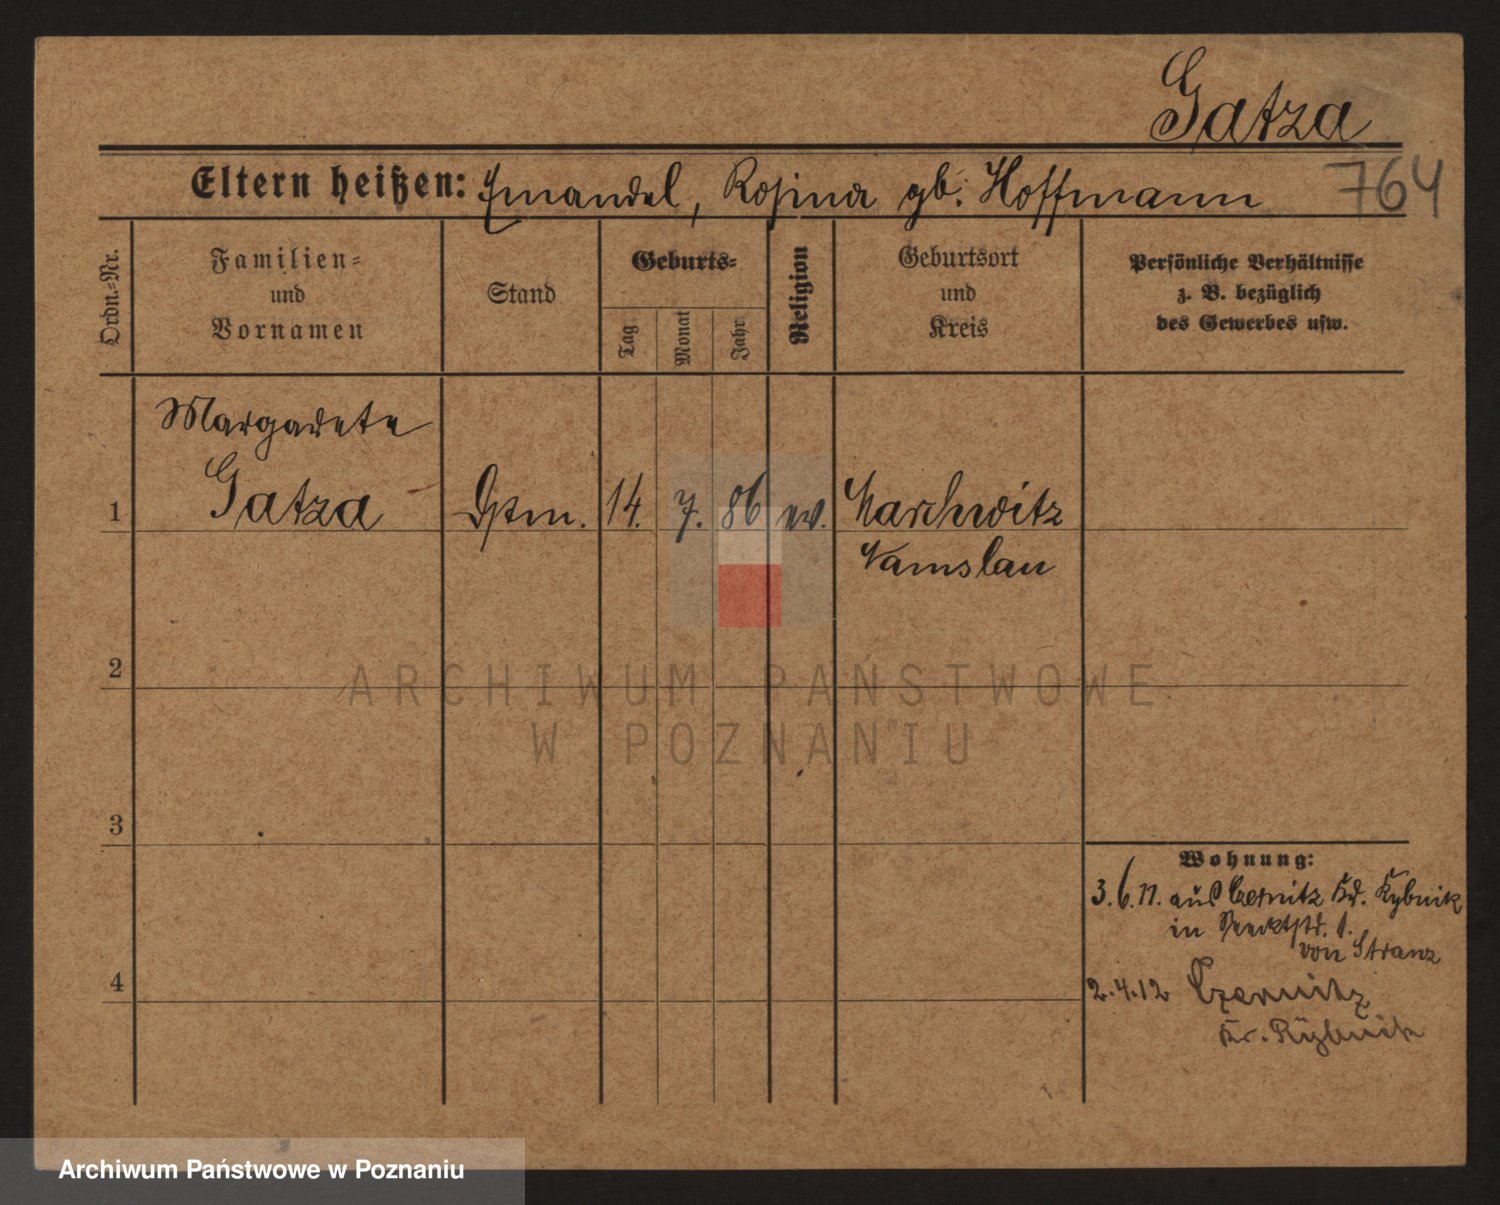 Gatza
Eltern heißen: Emanuel, Rosina gb. Hoffmann 764
Ordn.=Nr.
Familien=
und
Vornamen
Stand
Geburts=
Tag
Monat
Jahr
Religion
Geburtsort
und
Kreis
Persönliche Verhältnisse
z. B. bezüglich
des Gewerbes usw.
Margarete
1 Gatza 14. 7. 86 ev. Marchwitz
Namslau
2
3
4
Wohnung:
3.6.11. aus Czernitz Kr. Rybnik
in 1.
von Stranz
2.4.12 Czernitz
Kr. Rybnik
ARCHIWUM PAŃSTWOWE
W POZNANIU
Archiwum Państwowe w Poznaniu